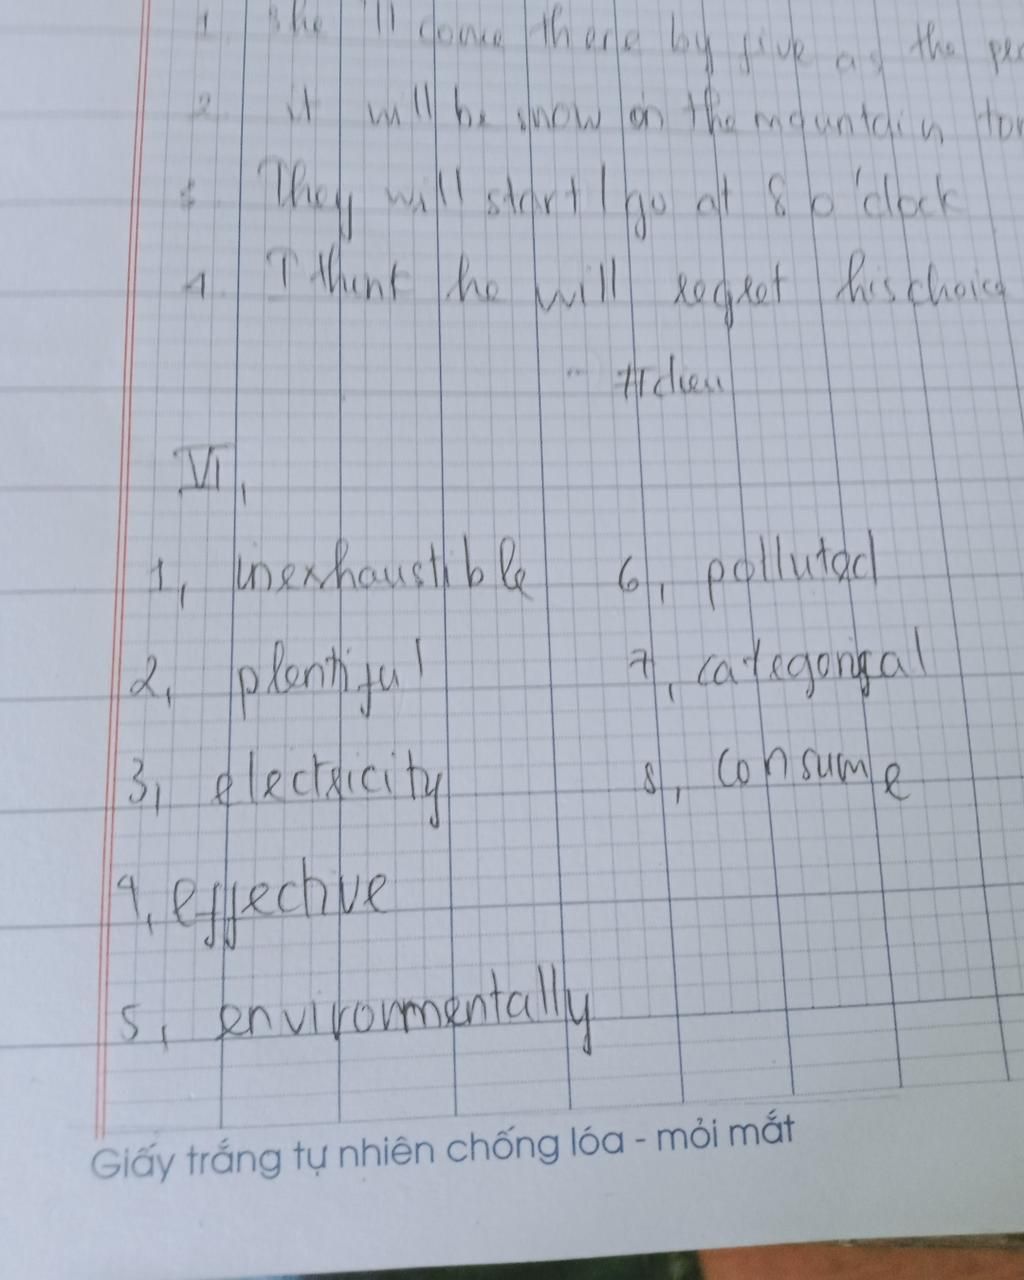 1. She 'll come there by five as the
2. it will be snow on the mountain
3 They will start / go at 8 o'clock
4. I thint he will regret his choice
VI,
1, inexhaustible 6, polluted
2, plentiful 7, categorical
3, electricity 8, consume
4, effective
5, environmentally
Giấy trắng tự nhiên chống lóa - mỏi mắt